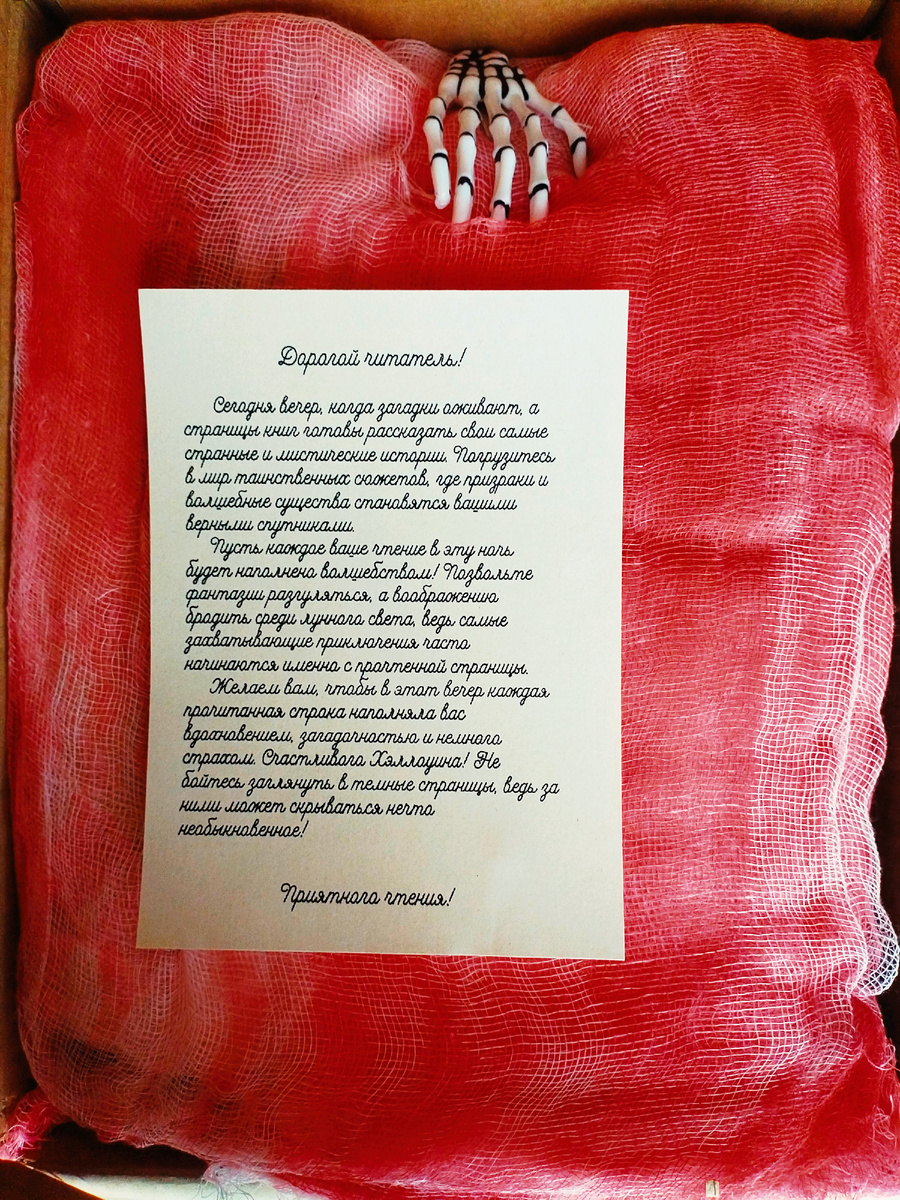 Дорогой читатель!
Сегодня вечер, когда загадки оживают, а
страницы книг готовы рассказать свои самые
странные и мистические истории. Погрузитесь
в мир таинственных сюжетов, где призраки и
волшебные существа становятся вашими
верными спутниками.
Пусть каждое ваше чтение в эту ночь
будет наполнено волшебством! Позвольте
фантазии разгуляться, а воображению
бродить среди лунного света, ведь самые
захватывающие приключения часто
начинаются именно с прочтенной страницы.
Желаем вам, чтобы в этот вечер каждая
прочитанная строка наполняла вас
вдохновением, загадочностью и немного
страхом. Счастливого Хэллоуина! Не
бойтесь заглянуть в темные страницы, ведь за
ними может скрываться нечто
необыкновенное!
Приятного чтения!